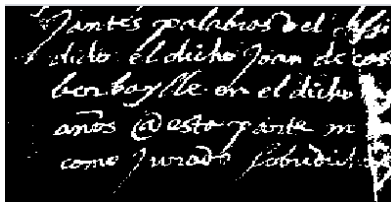 palabras del
dicho el dicho Joan de cas
ber bayle en el dicho
años @ esto parte m
como Jurado